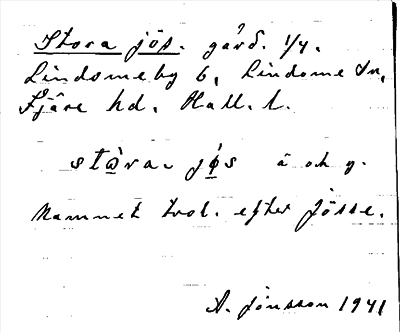 Stora jös. gård. 1/4.
Lindomeby 6, Lindome sn,
Fjäre hd, Hall. l.
stòra- jǿs ä och y.
Namnet trol. efter Jösse.
A. Jonsson 1941